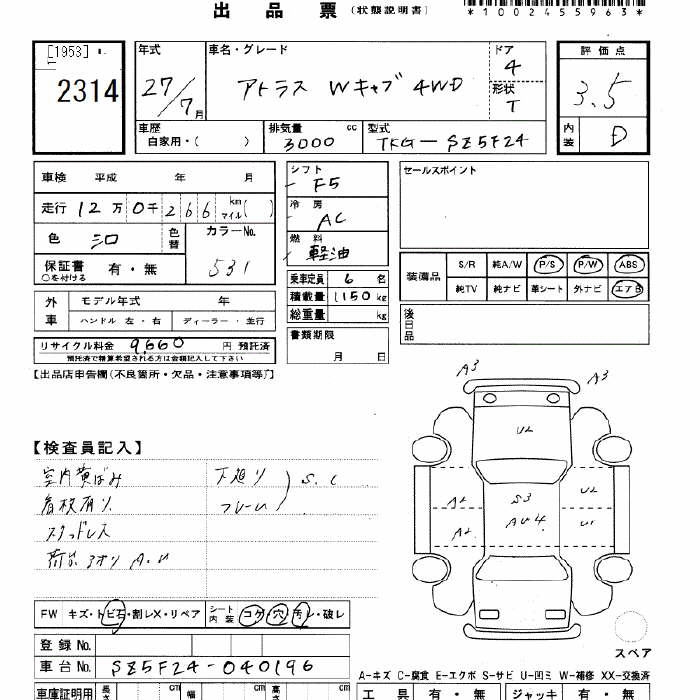 出 品 票 (状態説明書)
*1002455963*
[1953]
2314
年式
27/7月
車名・グレード
アトラス Wキャブ 4WD
ドア
4
形状
T
評価点
3.5
内装
D
車歴
自家用・( )
排気量 cc
3000
型式
TKG-SZ5F24
車検 平成 年 月
走行 12万 0千 266 km マイル( )
色 シロ 色替
カラーNo.
531
保証書 有・無
○を付ける
シフト
F5
冷房
AC
燃料
軽油
乗車定員 6 名
積載量 1150 kg
総重量 kg
書類期限
月 日
セールスポイント
装備品
S/R 純A/W P/S P/W ABS
純TV 純ナビ 革シート 外ナビ エアB
後日品
外車
モデル年式 年
ハンドル 左・右 ディーラー・並行
リサイクル料金 9,660 円 預託済
預託済で精算希望される方は金額記入して下さい
【出品店申告欄(不良箇所・欠品・注意事項等)】
【検査員記入】
室内黄ばみ 下廻り
看板有り フレーム S.C
スタッドレス
荷台アオリ A.U
A3
A3
U2
A2
S3
U2
A2
AU4
U1
スペア
FW キズ・トビ石・割レX・リペア シート内装 コゲ・穴・汚レ・破レ
登録No.
車台No. SZ5F24-040196
A-キズ C-腐食 E-エクボ S-サビ U-凹ミ W-補修 XX-交換済
車庫証明用 長さ cm 幅 cm 高さ cm
工具 有・無 ジャッキ 有・無